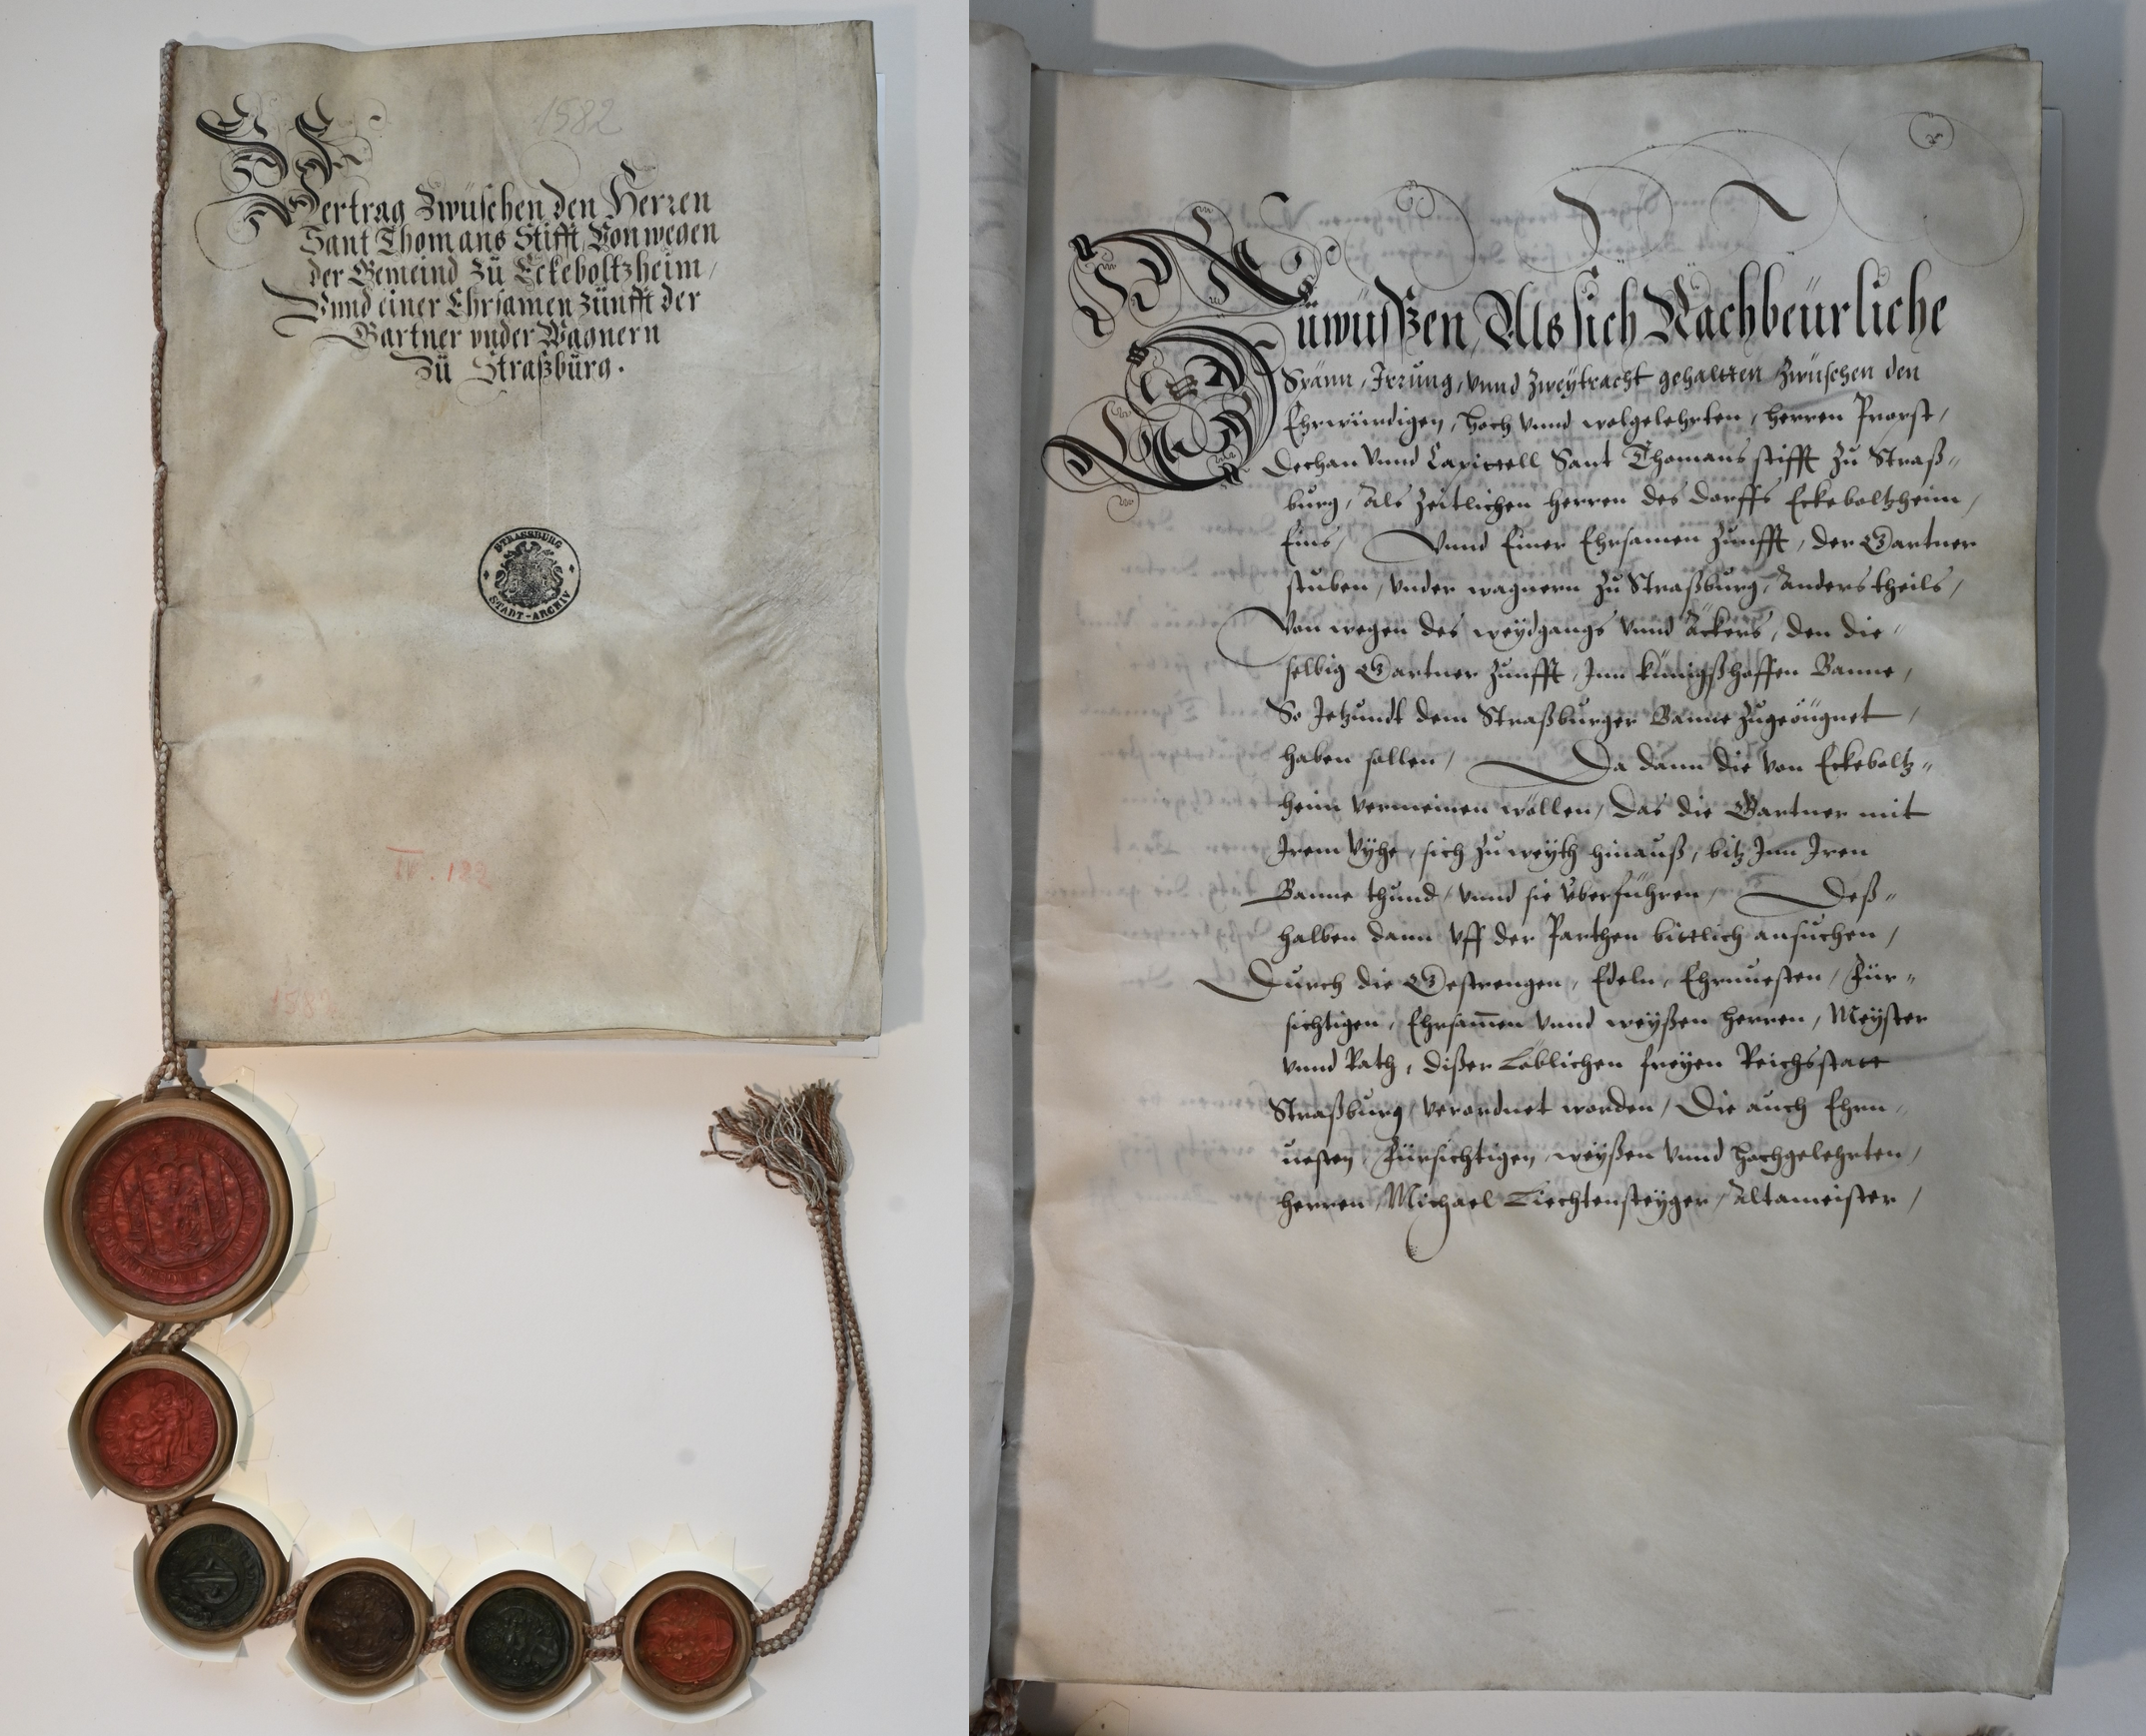 1582
Vertrag Zwüschen den Herren
Sant Thomans Stifft, Von wegen
der Gemeind Zü Eckeboltzheim /
Vnnd einer Ehrsamen Zünfft der
Gartner vnder Wagnern
Zü Straßbürg .
STRASSBURG
STADT-ARCHIV
IV . 182
1582
Zuwüsszen, Als sich Nachbeürliche
Spänn, Irrung, vnnd Zweÿtracht gehaltten Zwüschen den
Ehrwürdigen, hoch vnnd wolgelehrten, herren Propst,
Dechan vnnd Capittell, Sant Thomans stifft Zu Straß„
burg, Als Zeitlichen herren des dorffs Eckeboltzheim,
Eins, Vnnd Einer Ehrsamen Zunfft, der Gartner
stuben, vnder wagnern Zu Straßburg, Anders theils,
Von wegen des weÿdgangs vnnd Äckers, den die„
selbig Gartner Zunfft, Inn künigßhoffen Banne,
So Jetzundt dem Straßburger Banne Zugeöügnet,
haben sollen, Da dann die von Eckeboltz„
heim vermeinen wöllen, Das die Gartner mit
Irem Vÿhe, sich Zu weÿth hinauß, bitz Inn Iren
Banne thund, vnnd sie überführen, Deß„
halben dann vff der Parthen bittlich ansuchen,
Durch die Gestrengen, Edeln, Ehrnuesten, Für„
sichtigen, Ehrsam̄en vnnd weÿßen herren, Meÿster
vnnd Rath, dißer Loblichen freÿen Reichsstatt
Straßburg, verordnet worden, Die auch Ehrn„
uesten, Fürsichtigen, weÿßen vnnd hochgelehrten,
herren, Michael Liechtensteÿger, Altameister,